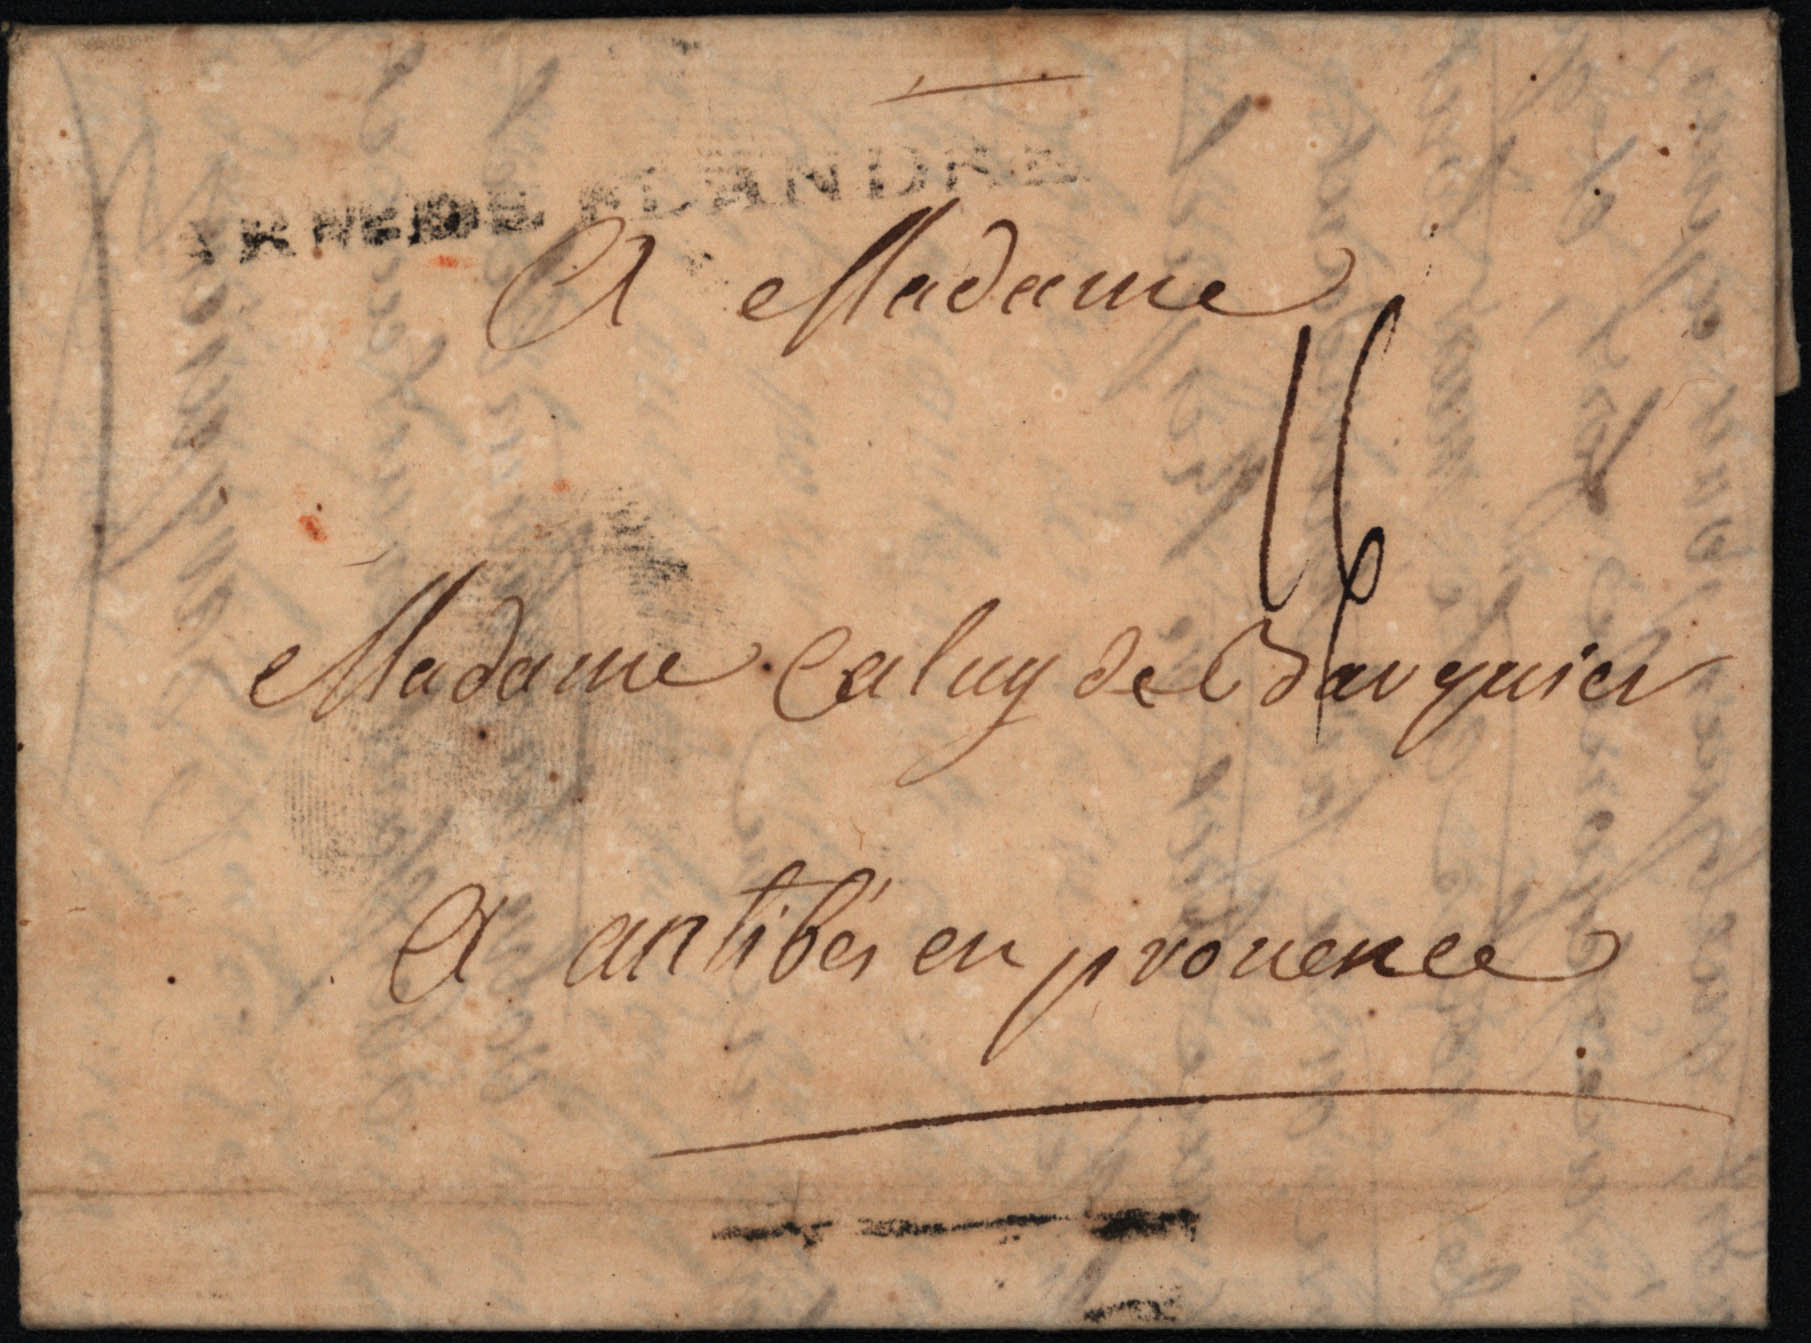 ARM. DE FLANDRE
A Madame
16
Madame Caluy de Barquier
A antibes en prouence